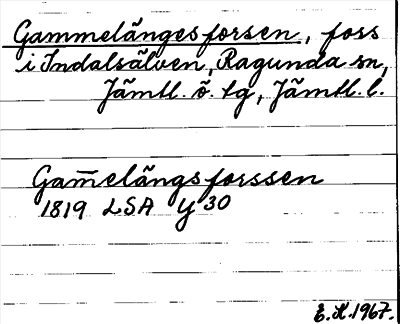 Gammelängesforsen, foss
i Indalsälven, Ragunda sn,
Jämtl. ö. tg, Jämtl. l.
Gam̅elängsforssen
1819 LSA Y 30
E.K. 1967.